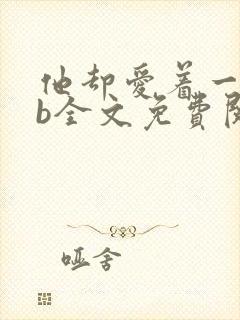 他却爱着一
b全文免费阅
哑舍